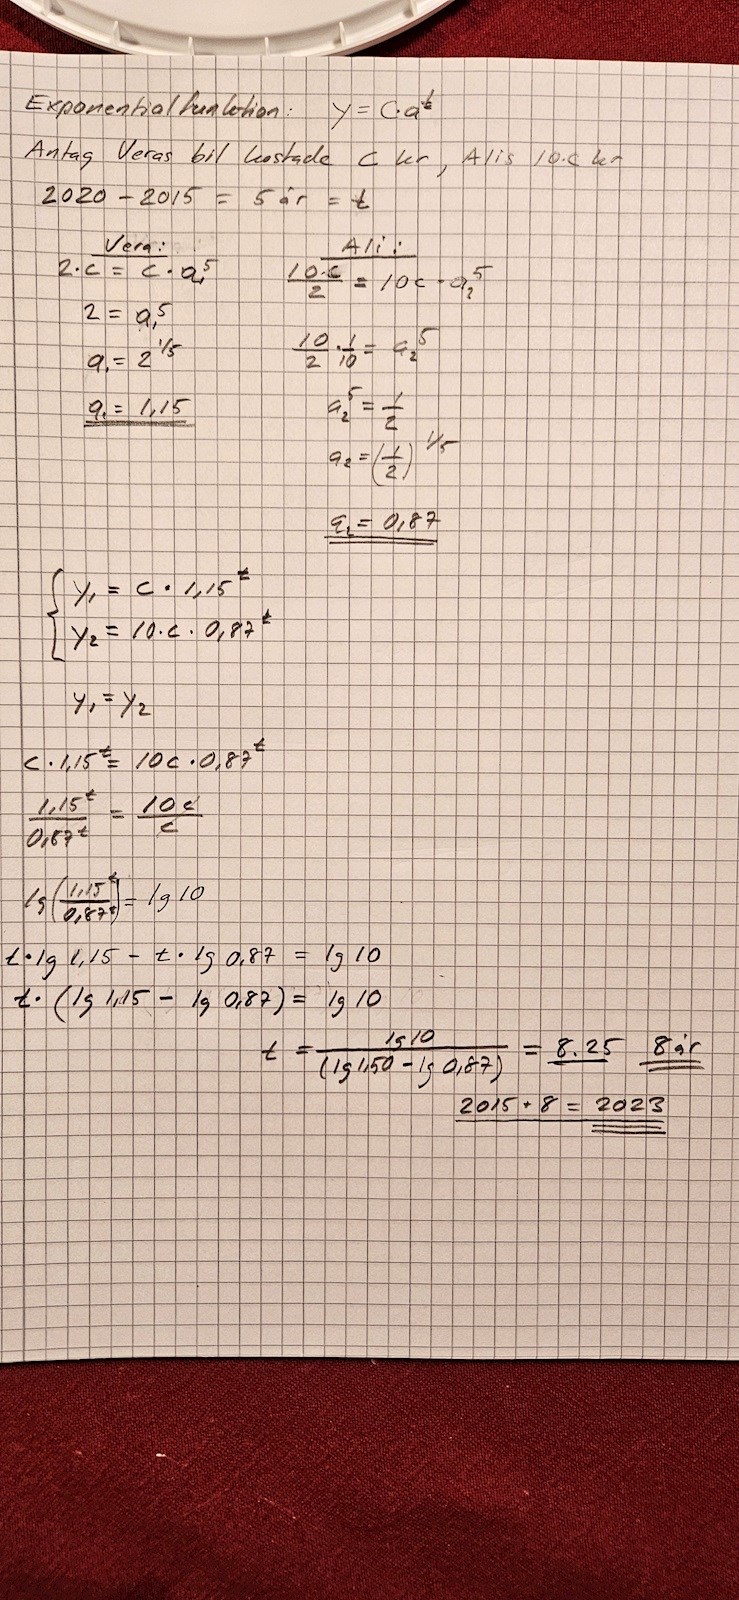 Exponentialfunktion: y = C·a^t
Antag Veras bil kostade C kr, Alis 10·C kr
2020 - 2015 = 5 år = t
Vera:
2·C = C · a₁^5
2 = a₁^5
a₁ = 2^1/5
a₁ = 1,15
Ali:
10·C/2 = 10C · a₂^5
10/2 · 1/10 = a₂^5
a₂^5 = 1/2
a₂ = (1/2)^1/5
a₂ = 0,87
{ y₁ = C · 1,15^t
y₂ = 10·C · 0,87^t
y₁ = y₂
C · 1,15^t = 10C · 0,87^t
1,15^t/0,87^t = 10C/C
lg(1,15^t/0,87^t) = lg 10
t·lg 1,15 - t·lg 0,87 = lg 10
t·(lg 1,15 - lg 0,87) = lg 10
t = lg 10/(lg 1,50 - lg 0,87) = 8.25 8 år
2015 + 8 = 2023